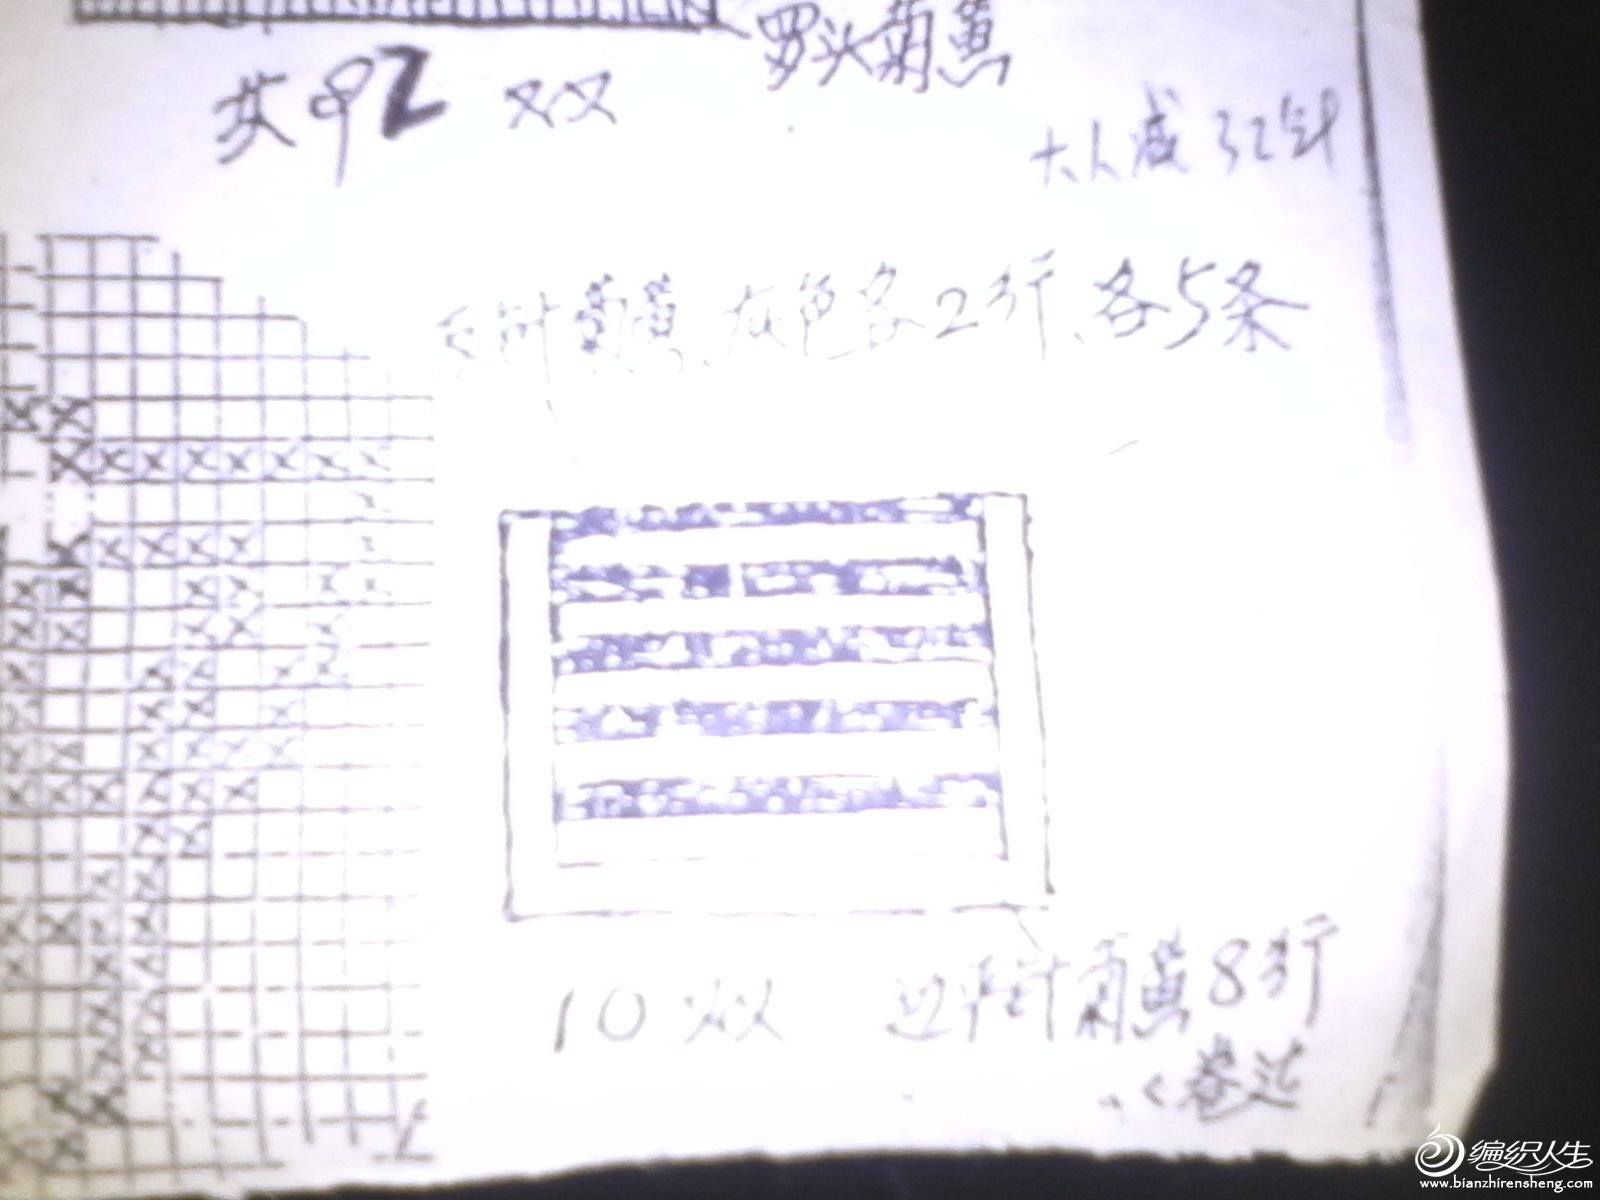 罗头菊黄
共92双
大人减32针
反针菊黄、灰色各2行、各5条
10双
边平针菊黄8行
卷边
编织人生
www.bianzhirensheng.com